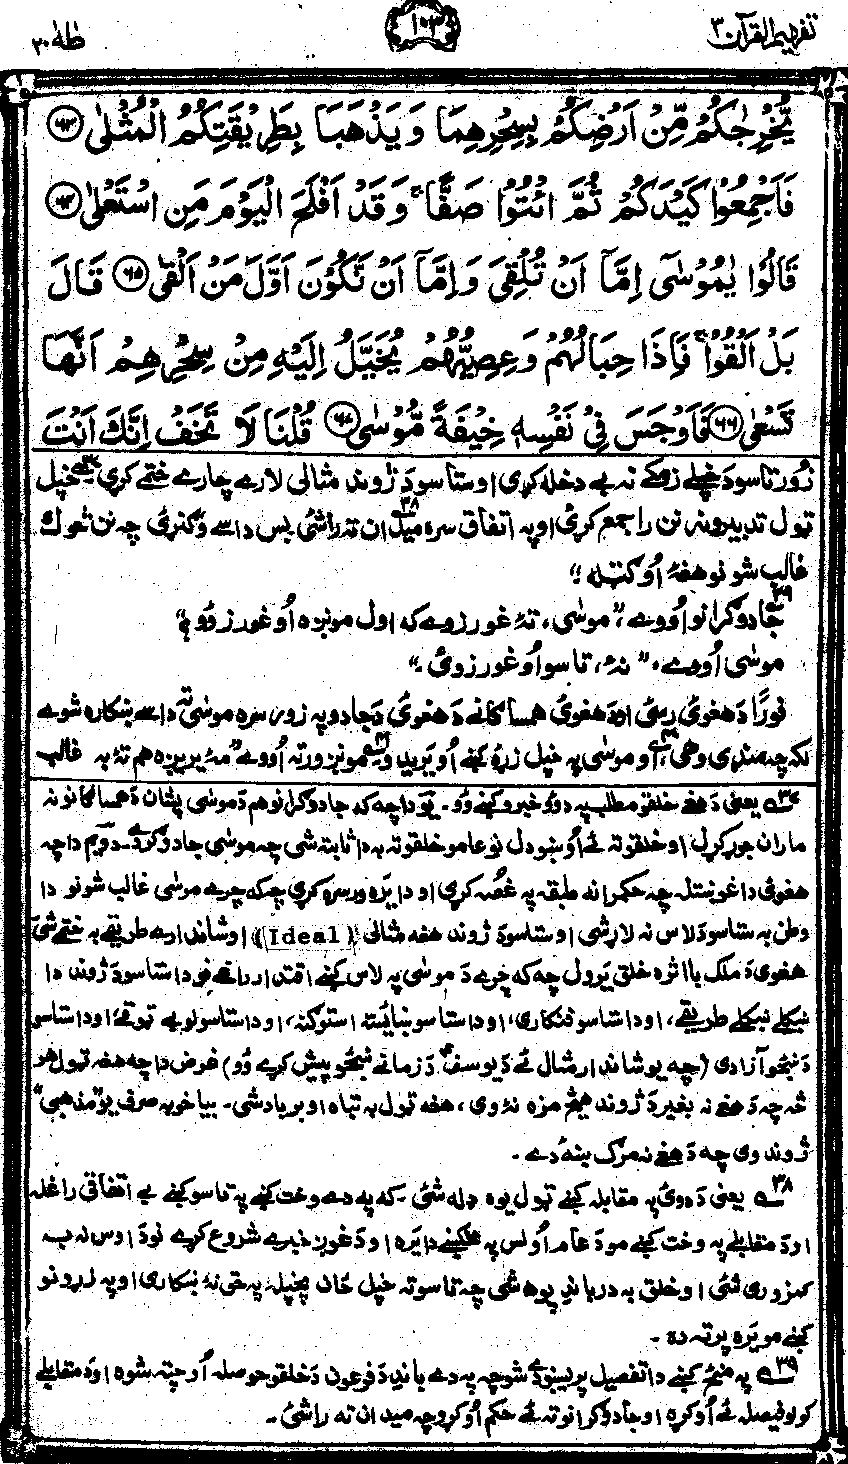 تفهیم القرآن ۳
۱۰۳
طٰهٰ ۲۰
يُخْرِجٰكُمْ مِّنْ اَرْضِكُمْ بِسِحْرِهِمَا وَيَذْهَبَا بِطَرِيْقَتِكُمُ الْمُثْلٰى ﴿۶۳﴾
فَاَجْمِعُوْا كَيْدَكُمْ ثُمَّ ائْتُوْا صَفًّا ۚ وَقَدْ اَفْلَحَ الْيَوْمَ مَنِ اسْتَعْلٰى ﴿۶۴﴾
قَالُوْا يٰمُوْسٰٓى اِمَّآ اَنْ تُلْقِيَ وَاِمَّآ اَنْ نَّكُوْنَ اَوَّلَ مَنْ اَلْقٰى ﴿۶۵﴾ قَالَ
بَلْ اَلْقُوْا ۚ فَاِذَا حِبَالُهُمْ وَعِصِيُّهُمْ يُخَيَّلُ اِلَيْهِ مِنْ سِحْرِهِمْ اَنَّهَا
تَسْعٰى ﴿۶۶﴾ فَاَوْجَسَ فِيْ نَفْسِهٖ خِيْفَةً مُّوْسٰى ﴿۶۷﴾ قُلْنَا لَا تَخَفْ اِنَّكَ اَنْتَ
زور تاسو د خپلې زمکې نه بې دخله کړی او ستاسو د ژوند مثالی لارې چارې ختمې کړی ۳۷ خپل
ټول تدبیرونه نن راجمع کړئ او په اتفاق سره میدان ته راشئ ۳۸ بس داسې وګنړئ چه نن څوک
غالب شو نو هغهٔ اُوګټله ؛"
۳۹ جادوګرانو اُووے، "موسٰی، تهٔ غورزوے که اول مونږه اُوغورزوو؟"
موسٰی اُووے، "نهٔ، تاسو اُوغورزوئ."
فورًا د هغوئ رسئ او د هغوئ همساګانے د هغوئ د جادو په زور سره موسٰی ته داسے ښکاره شوے
لکه چه منډې وهی، ۴۰ او موسٰی په خپل زړهٔ کښے اُویریدو ۴۱ مونږ ورته اُووے "مهٔ یریږه هم تهٔ به غالب
۳۷ یعنی د هغے خلقو مطلب په دوو خبرو کښے وو. یو دا چه که جادوګرانو هم د موسٰی پشان د همساګانو نه
ماران جوړ کړل او خلقو ته ئے اُوښودل نو عامو خلقو ته به دا ثابته شی چه موسٰی جادو کړے. دویم دا چه
هغوئ دا غوښتله چه حکمرانه طبقه په غُصه کړی او دا یره ورسره کړی چه که چرے موسٰی غالب شو نو دا
وطن به ستاسو د لاس نه لاړ شی او ستاسو د ژوند هغه مثالی (Ideal) او شاندارے طریقے به ختمے شی،
هغوی د ملک بااثره خلق یرول چه که چرے د موسٰی په لاس کښے اقتدار راغے نو دا ستاسو د ژوند دا
ښکلے ښکلے طریقے، او دا ستاسو فنکاری، او دا ستاسو ښائسته استوګنه، او دا ستاسو لوبے ټوقے، او دا ستاسو
د ښځو آزادی (چه یو شاندار مثال ئے د یوسف د زمانے ښځو پیش کړے وو) غرض دا چه هغه ټول هر
څه چه د هغے نه بغیر د ژوند هیڅ مزه نهٔ وی، هغه ټول به تباه او برباد شی. بیا خو به صرف یو "مذهبی"
ژوند وی چه د هغے نه مرګ ښهٔ دے.
۳۸ یعنی د دوئ په مقابله کښے ټول یوه ډله شئ. که په دے وخت کښے په تاسو کښے بے اتفاقی راغله
او د مقابلے په وخت کښے مو د عام اُولس په مخکښے دا یره او د غوږ خبرے شروع کړے نو د اوس نه به
کمزوری شئی او خلق به درباندِ پوهه شی چه تاسو ته خپل ځان پخپله په حق نهٔ ښکاری او په زړونو
کښے مو یره پرته ده.
۳۹ په منځ کښے دا تفصیل پریښودے شو چه په دے باندِ د فرعون د خلقو حوصله اُوچته شوه او د مقابلے
کولو فیصله ئے اُوکړه او جادوګرانو ته ئے حکم اُوکړو چه میدان ته راشئ.